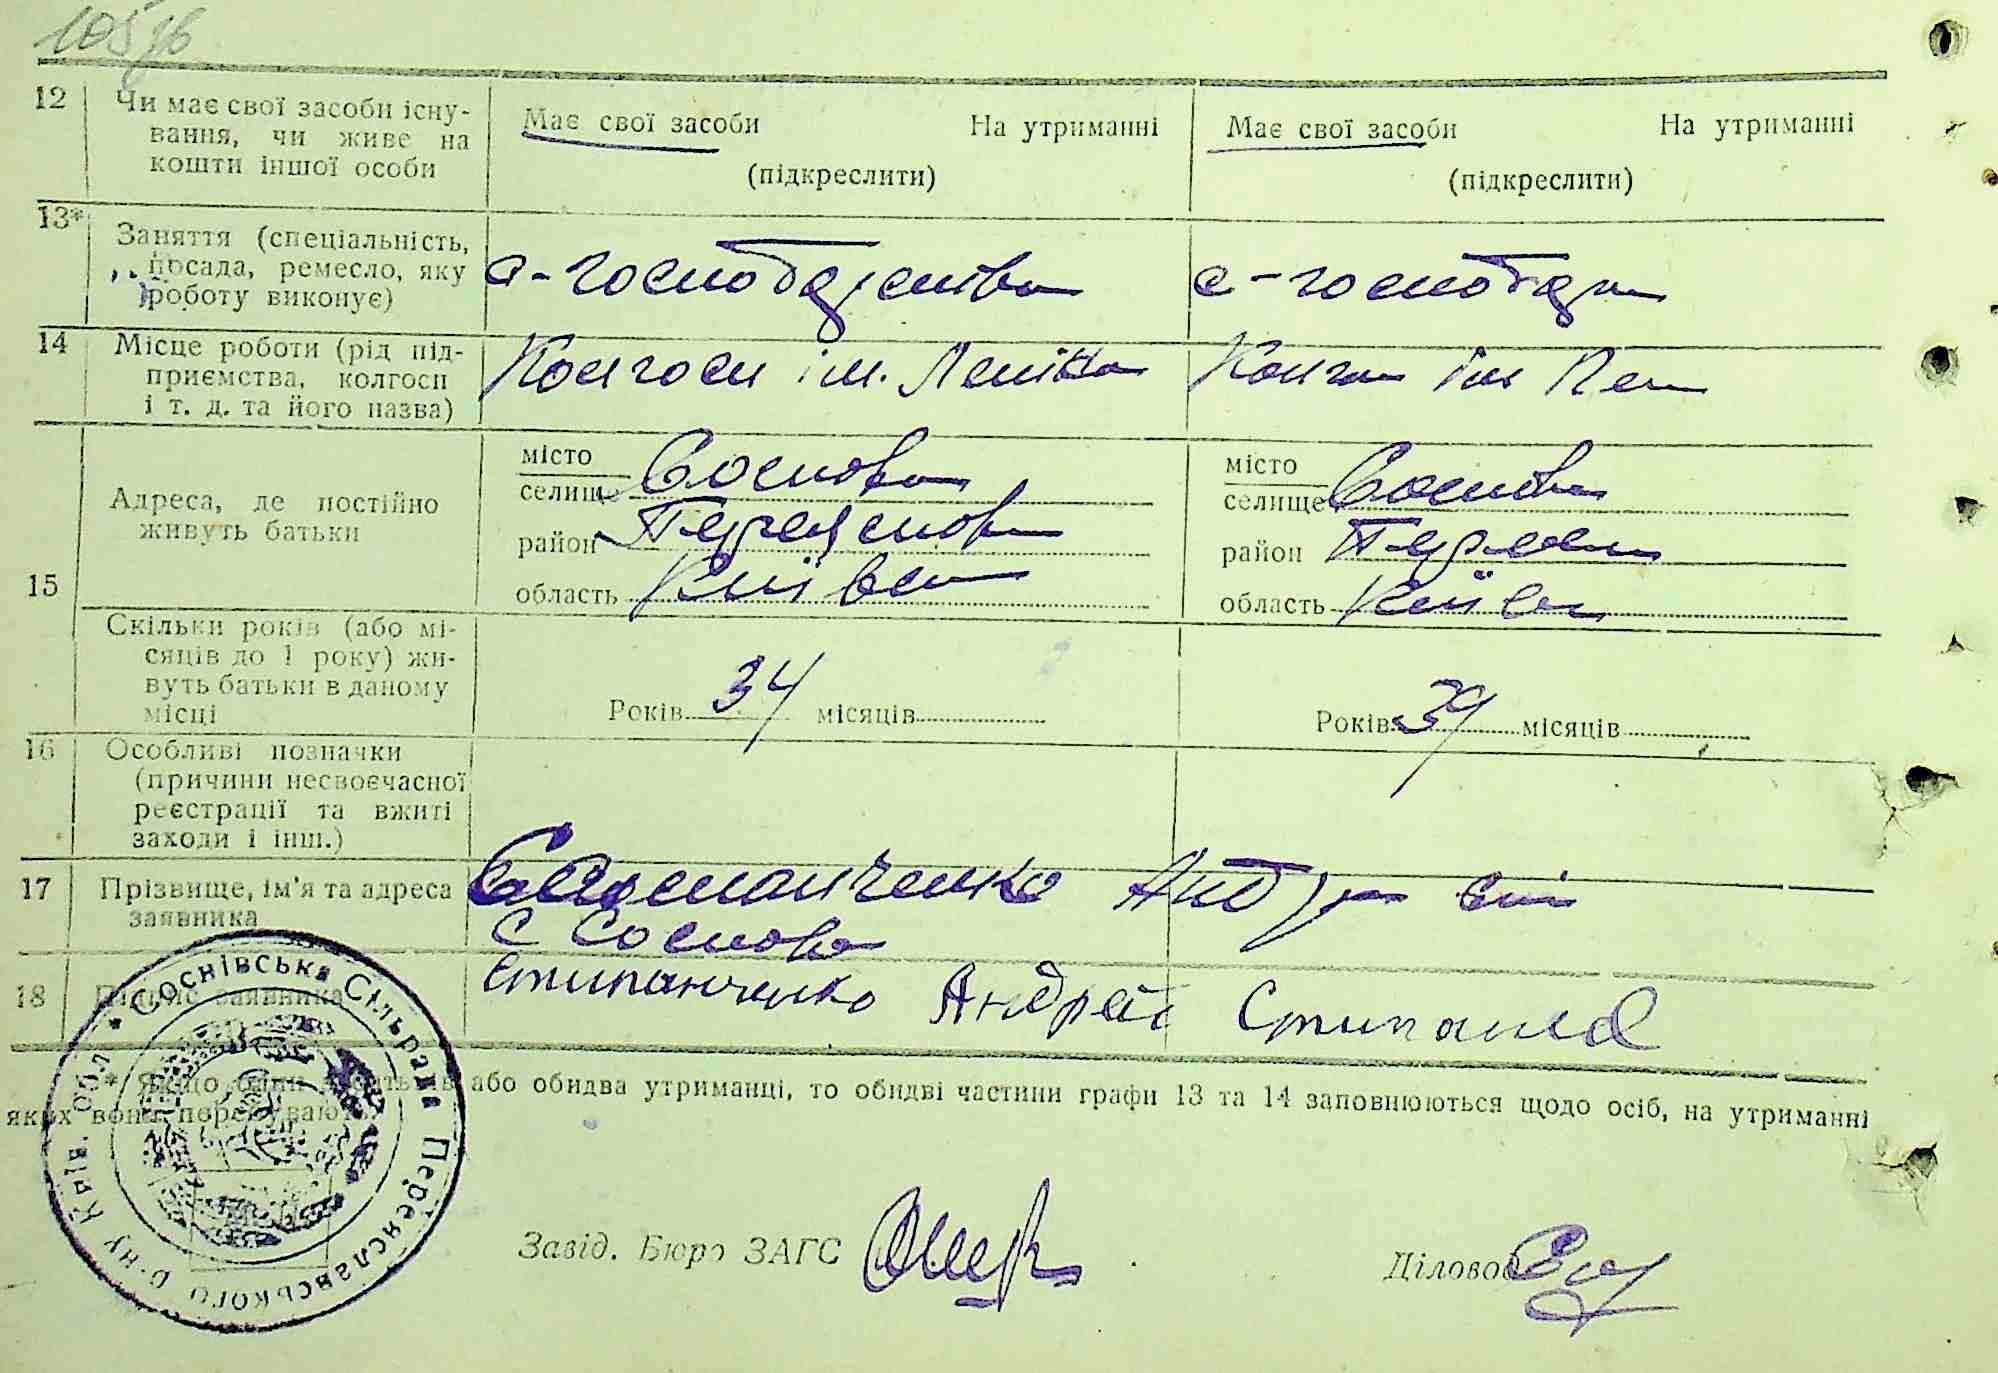 105 зв
12 Чи має свої засоби існу-
вання, чи живе на
кошти іншої особи
Має свої засоби На утриманні
(підкреслити)
Має свої засоби На утриманні
(підкреслити)
13* Заняття (спеціальність,
посада, ремесло, яку
роботу виконує)
с-господарства
с-господар
14 Місце роботи (рід під-
приємства, колгосп
і т. д. та його назва)
Колгосп ім. Леніна
Колгосп ім Лен
15
Адреса, де постійно
живуть батьки
місто
селище Соснова
район Переяслов
область Київс
місто
селище Соснова
район Переясл
область Київс
Скільки років (або мі-
сяців до 1 року) жи-
вуть батьки в даному
місці
Років 34 місяців
Років 34 місяців
16 Особливі позначки
(причини несвоєчасної
реєстрації та вжиті
заходи і інш.)
17 Прізвище, ім'я та адреса
заявника
Степанченко Андр
с Соснова
18 Підпис заявника
Стипанченко Андрей Стипанов
* Якщо один з батьків або обидва утриманці, то обидві частини графи 13 та 14 заповнюються щодо осіб, на утриманні
яких вони перебувають.
* Соснівська Сільрада Переяславського р-ну Київ. обл.
Завід. Бюро ЗАГС
Діловод